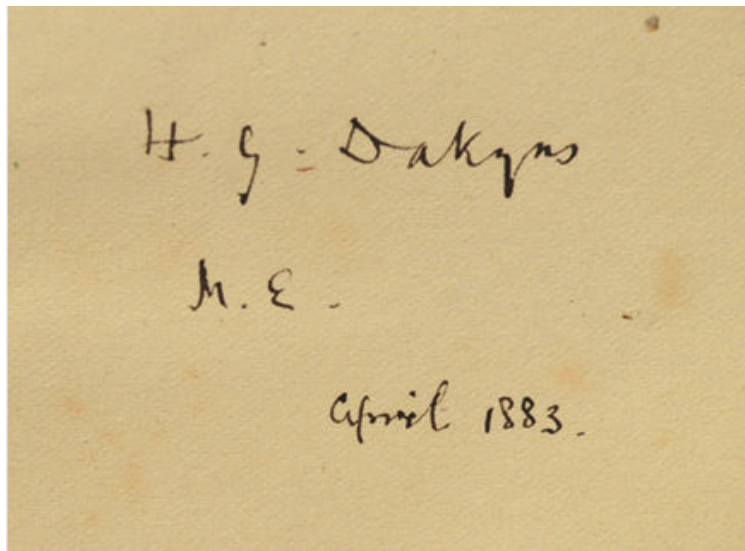 H. G. Dakyns
M. E.
April 1883.